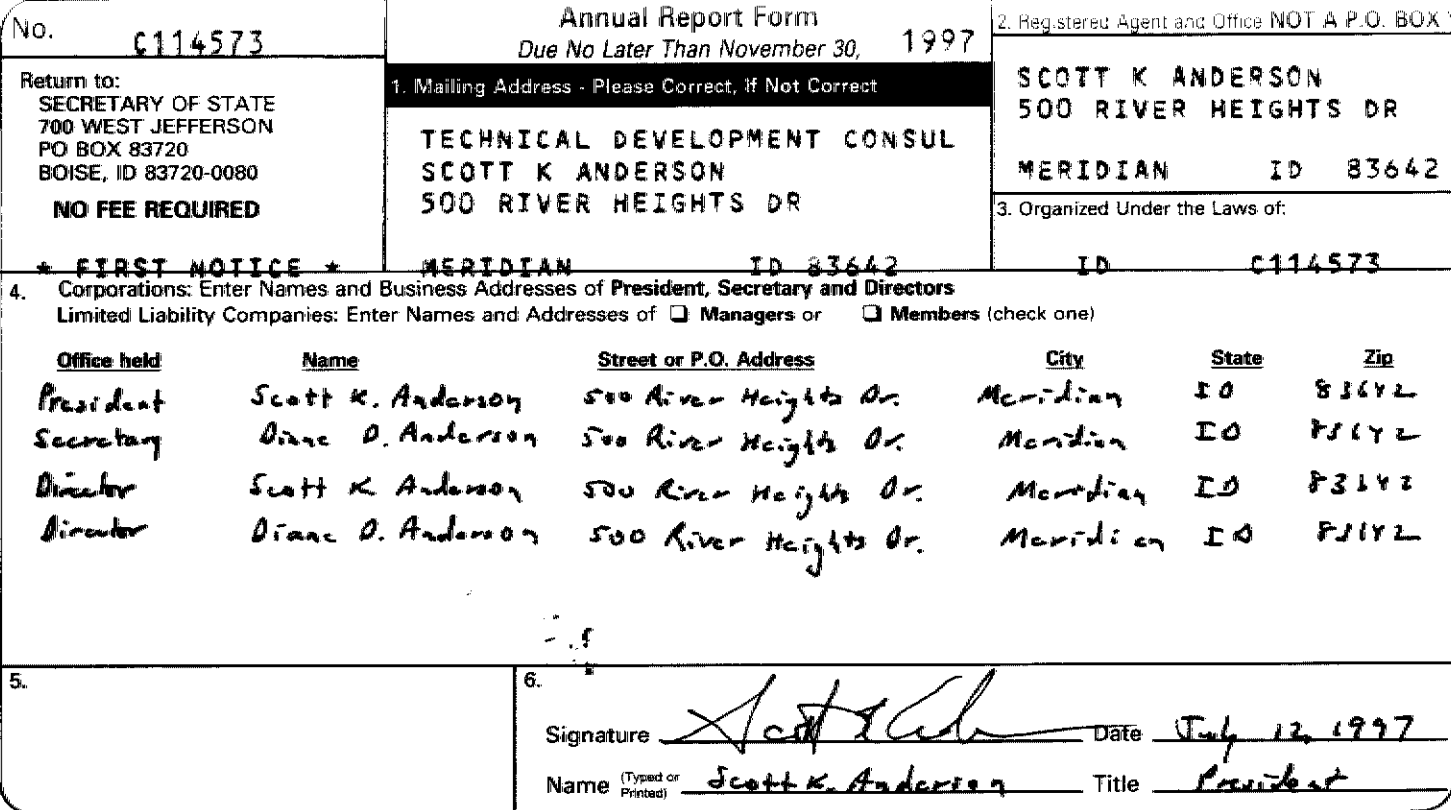 No. C114573
Annual Report Form
Due No Later Than November 30, 1997
Return to:
SECRETARY OF STATE
700 WEST JEFFERSON
PO BOX 83720
BOISE, ID 83720-0080
NO FEE REQUIRED
* FIRST NOTICE *
1. Mailing Address - Please Correct, If Not Correct
TECHNICAL DEVELOPMENT CONSUL
SCOTT K ANDERSON
500 RIVER HEIGHTS DR
MERIDIAN ID 83642
2. Registered Agent and Office NOT A P.O. BOX
SCOTT K ANDERSON
500 RIVER HEIGHTS DR
MERIDIAN ID 83642
3. Organized Under the Laws of:
ID C114573
4. Corporations: Enter Names and Business Addresses of President, Secretary and Directors
Limited Liability Companies: Enter Names and Addresses of ❑ Managers or ❑ Members (check one)
Office held Name Street or P.O. Address City State Zip
President Scott K. Anderson 500 River Heights Dr. Meridian ID 83642
Secretary Diane D. Anderson 500 River Heights Dr. Meridian ID 83642
Director Scott K Anderson 500 River Heights Dr. Meridian ID 83642
Director Diane D. Anderson 500 River Heights Dr. Meridian ID 83642
5.
6.
Signature Scott K Anderson Date July 12, 1997
Name (Typed or Printed) Scott K. Anderson Title President